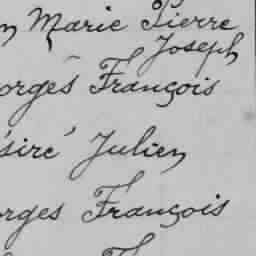 n Marie Pierre
Joseph
orges François
siré Julien
rges François